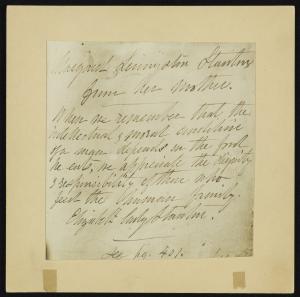 Margaret Livingston Stanton
from her mother.
When we remember that the
intellectual & moral condition
of a man depends on the food
he eats, we appreciate the dignity
& responsibility of those who
feed the human family.
Elizabeth Cady Stanton.
See pg. 401.